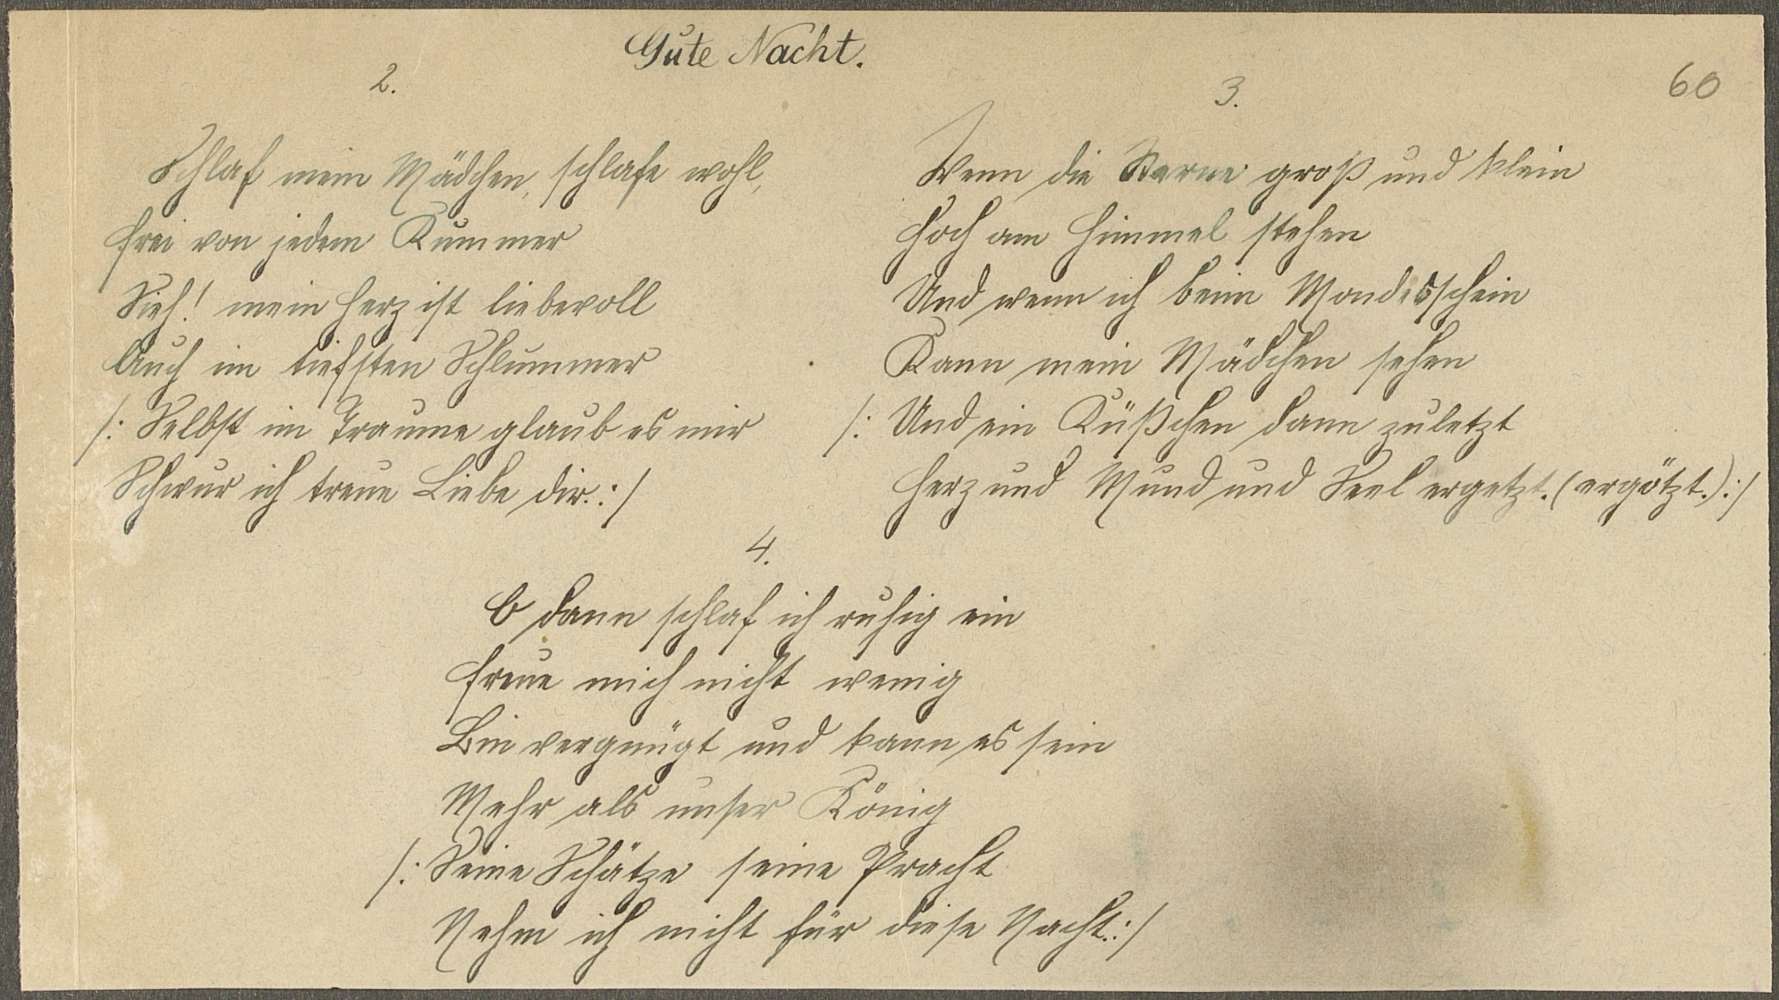 Gute Nacht.
60
2.
Schlaf mein Mädchen, schlafe wohl,
Frei von jedem Kummer
Sieh! mein Herz ist liebevoll
Auch im tiefsten Schlummer
/: Selbst im Traume glaub es mir
Schwur ich treue Liebe dir. :/
3.
Wenn die Sterne groß und klein
Hoch am Himmel stehen
Und wenn ich beim Mondesschein
Kann mein Mädchen sehen
/: Und ein Küßchen dann zuletzt
Herz und Mund und Seel ergetzt. (ergötzt.) :/
4.
O dann schlaf ich ruhig ein
Freue mich nicht wenig
Bin vergnügt und kann es sein
Mehr als unser König
/: Seine Schätze seine Pracht
Nehm ich nicht für diese Nacht. :/